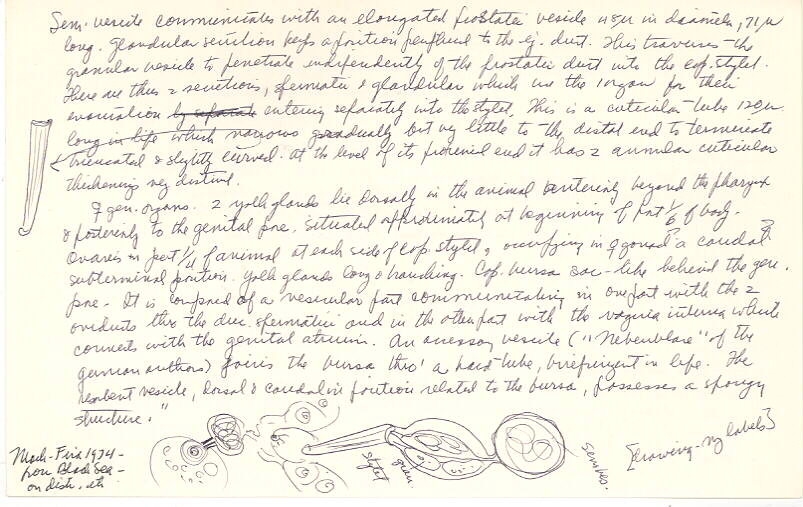 Sem. vesicle communicates with an elongated prostatic vesicle 48µ in diameter, 71µ
long. Glandular secretion keeps a position peripheral to the ej. duct. This traverses the
granular vesicle to penetrate independently of the prostatic duct into the cop. stylet.
There are thus 2 secretions, spermatic & glandular which use the 1 organ for their
evacuation by separate entering separately into the stylet. This is a cuticular tube 120µ
long in life which narrows gradually but very little to the distal end to terminate
truncated & slightly curved. At the level of its proximal end it has 2 annular cuticular
thickenings very distinct.
♀ gen. organs. 2 yolk glands lie dorsally in the animal beyond the pharynx
& posteriorly to the genital pore, situated approximately at beginning of post 1/6 of body.
Ovaries in post 1/4 of animal at each side of cop. stylet, occupying in ♀ gonad a caudal
subterminal position. Yolk glands long & branching. Cop. bursa sac-like behind the gen.
pore. It is composed of a vesicular part communicating in one part with the 2
oviducts thro the duc. spermatici and in the other part with the vagina interna which
connects with the genital atrium. An accessory vesicle ("Nebenblase" of the
german authors) joins the bursa thro' a hard tube, birefringent in life. The
resorbent vesicle, dorsal & caudal in position related to the bursa, possesses a spongy
structure."
Mack-Fira 1974-
from Black Sea-
on distr. etc
stylet
gran.
sem ves.
[drawing - my labels]